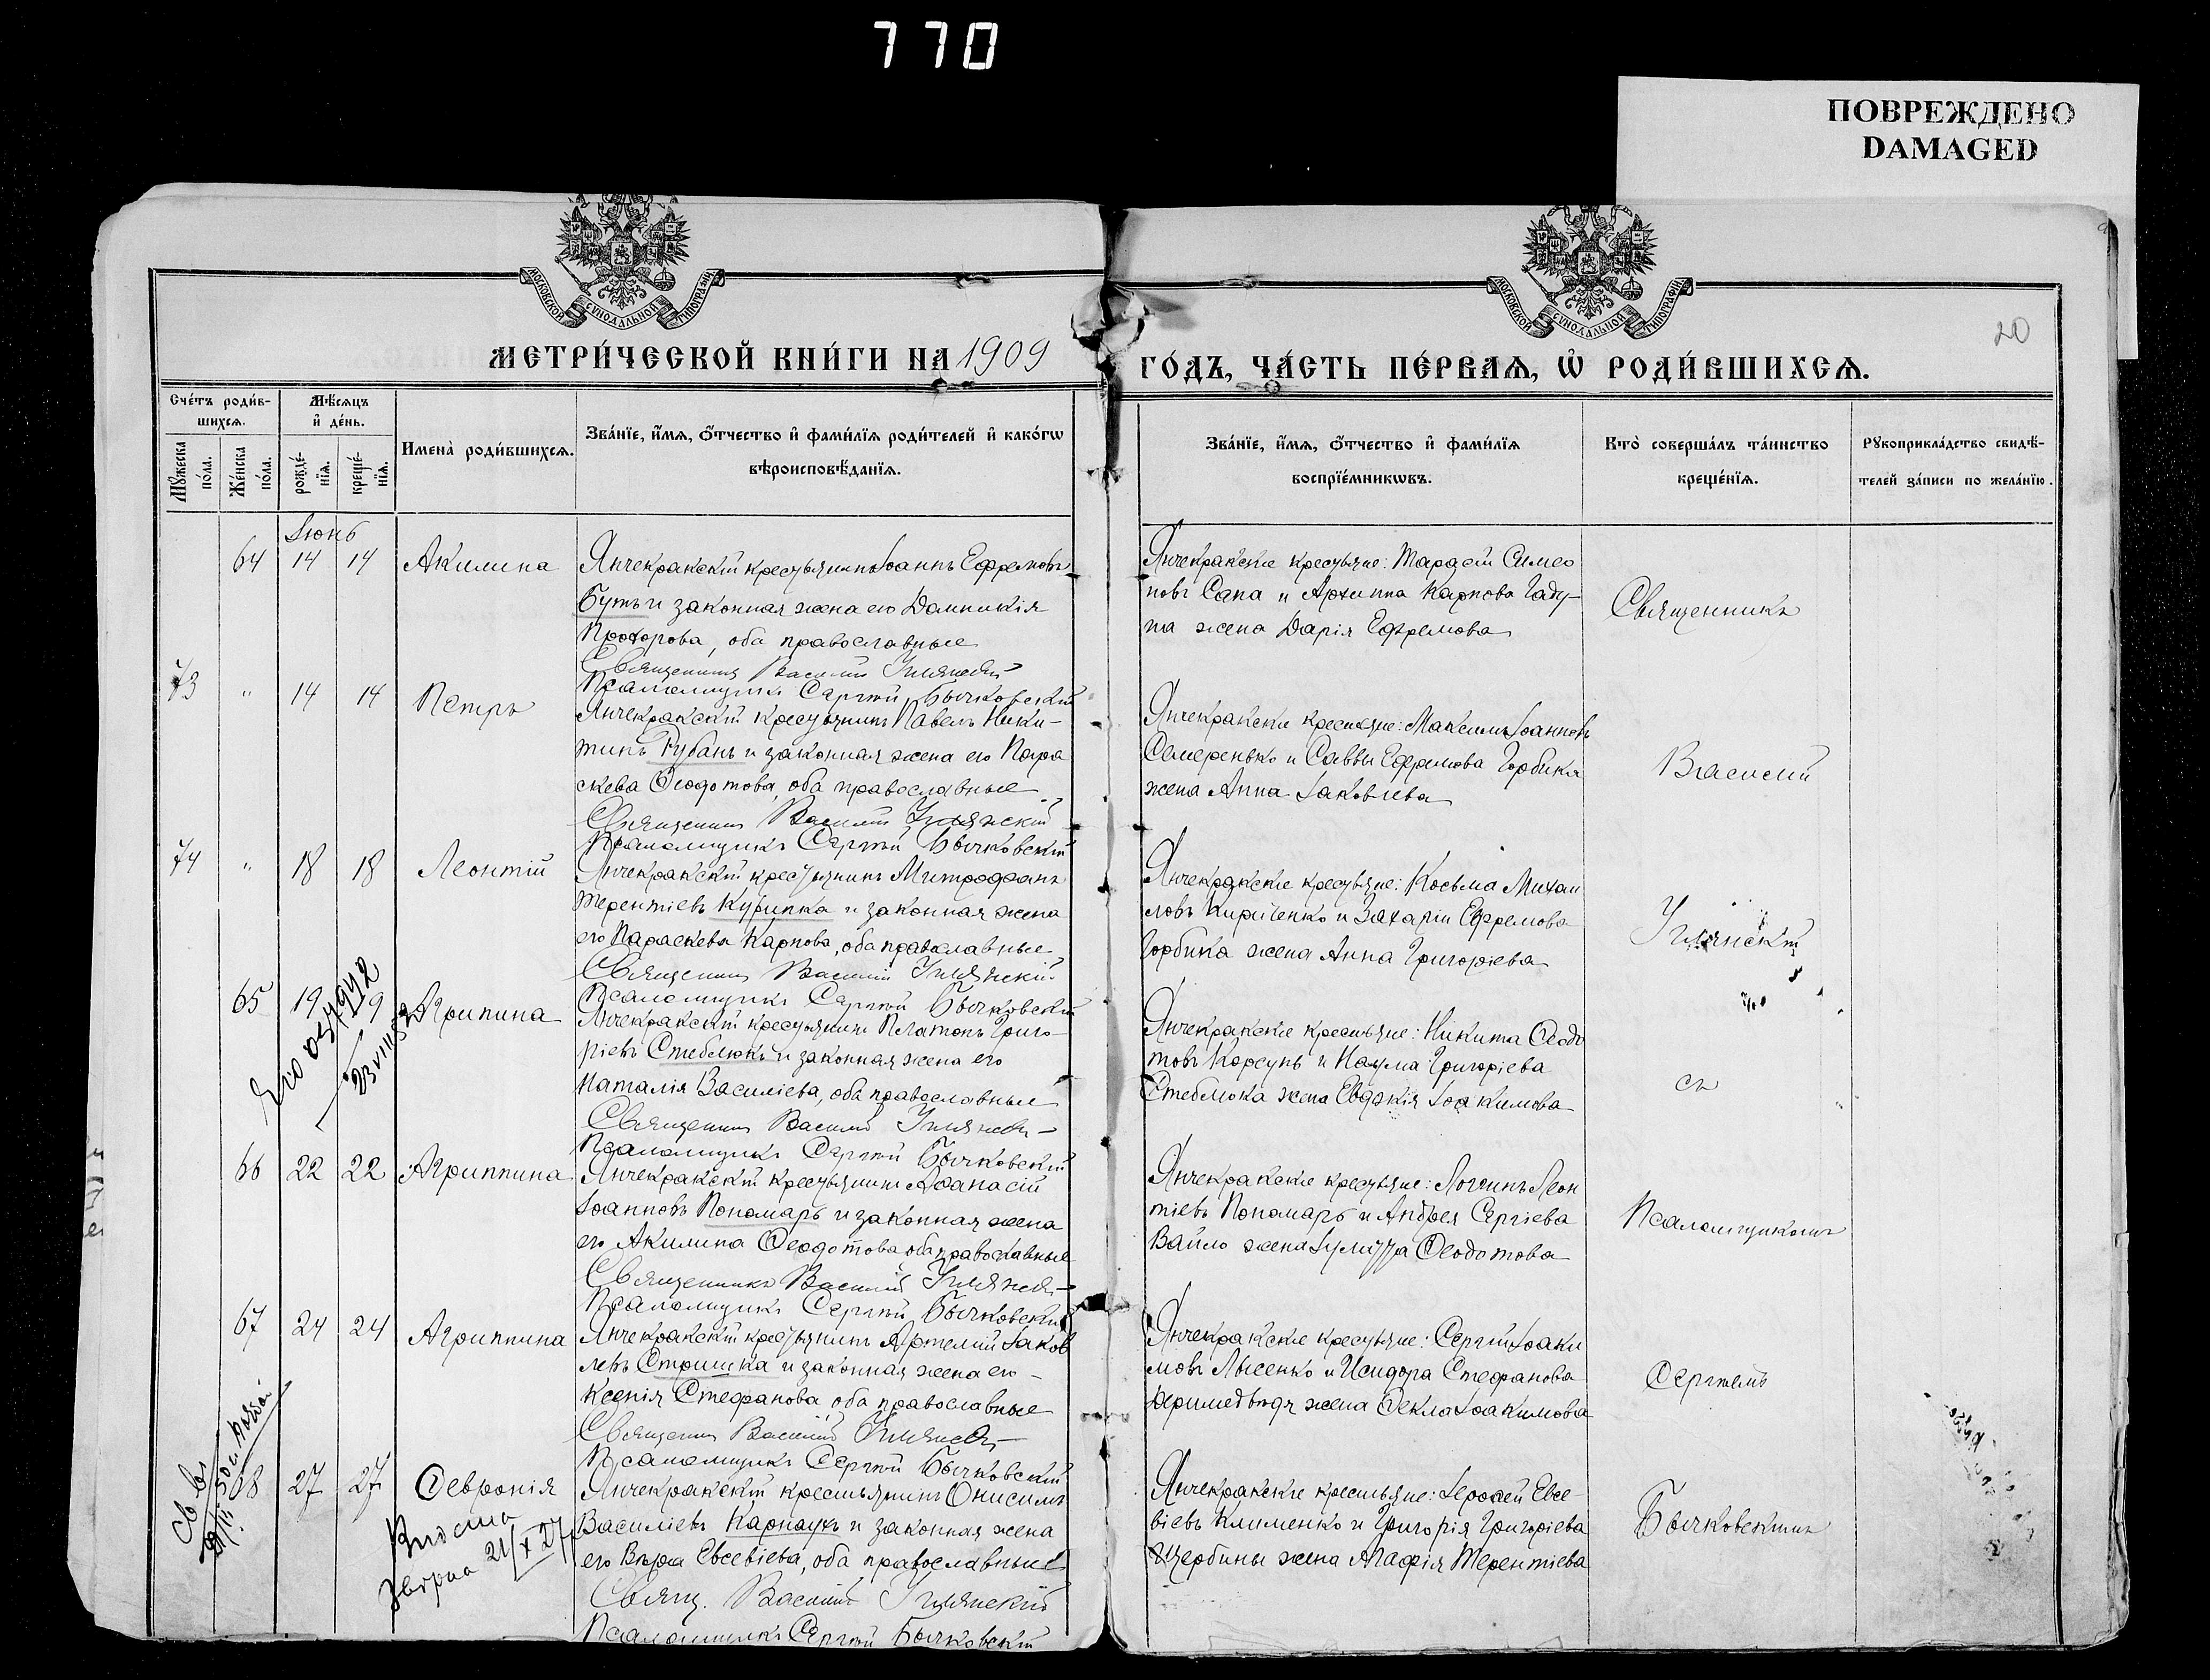 770
ПОВРЕЖДЕНО
DAMAGED
МОСКОВСКОЙ СѴНОДАЛЬНОЙ ТИПОГРАФІИ
МОСКОВСКОЙ СѴНОДАЛЬНОЙ ТИПОГРАФІИ
20
МЕТРИ́ЧЕСКОЙ КНИ́ГИ НА 1909
ГО́ДЪ, ЧА́СТЬ ПЕ́РВАѦ, Ѡ҆ РОДИ́ВШИХСѦ.
Сче́тъ роди́в-
шихсѧ.
Мѣ́сѧцъ
и҆ де́нь.
Мꙋ́жеска по́ла.
Же́нска по́ла.
рожде́-нїѧ.
креще́-нїѧ.
Имена̀ роди́вшихсѧ.
Зва́нїе, и҆́мѧ, ѻ҆́тчество и҆ фами́лїѧ роди́телей и҆ како́гѡ
вѣроисповѣ́данїѧ.
Зва́нїе, и҆́мѧ, ѻ҆́тчество и҆ фами́лїѧ
воспрїе́мникѡвъ.
Кто̀ соверша́лъ та́инство
креще́нїѧ.
Рꙋкоприкла́дство свидѣ́-
телей за́писи по жела́нїю.
Іюнь
64 14 14 Акилина Янчекракскій крестьянинъ Іоаннъ Ефремовъ
Буть и законная жена его Домникія
Прохорова, оба православные
Священникъ Василій
Псаломщикъ Сергѣй Бычковскій
Янчекракскіе крестьяне: Тарасій Симео
новъ Сапа и Архиппа Карпова Гаду-
па жена Дарія Ефремова
Священникъ
73 " 14 14 Петръ
Янчекракскій крестьянинъ Павелъ Ники-
тинъ Рубанъ и законная жена его Пара
скева Ѳеодотова, оба православные
Священникъ Василій
Псаломщикъ Сергѣй Бычковскій
Янчекракскіе крестьяне: Максимъ Іоанновъ
Семеренько и Саввы Ефремова Горбика
жена Анна Іаковлева
Василій
74 " 18 18 Леонтій
Янчекракскій крестьянинъ Митрофанъ
Терентіевъ Курипка и законная жена
его Параскева Карпова, оба православные
Священникъ Василій
Псаломщикъ Сергѣй Бычковскій
Янчекракскіе крестьяне: Косьма Михаи
ловъ Кириченко и Захарія Ефремова
Горбика жена Анна Григоріева
65 19 19 Агрипина
Янчекракскій крестьянинъ Платонъ Григо-
ріевъ Стеблюкъ и законная жена его
Наталія Василіева, оба православные
Священникъ Василій
Псаломщикъ Сергѣй Бычковскій
Янчекракскіе крестьяне: Никита Ѳеодо
товъ Корсунъ и Наума Григоріева
Стеблюка жена Евдокія Іоакимова
съ
66 22 22 Агриппина
Янчекракскій крестьянинъ Аѳанасій
Іоанновъ Пономарь и законная жена
его Акилина Ѳеодотова оба православные
Священникъ Василій
Псаломщикъ Сергѣй Бычковскій
Янчекракскіе крестьяне: Логгинъ Леон
тіевъ Пономарь и Андрея Сергіева
Вайло жена Іулитта Ѳеодотова
Псаломщикомъ
67 24 24 Агриппина
Янчекракскій крестьянинъ Артемій Іаков
левъ Стришка и законная жена его
Ксенія Стефанова оба православные
Священникъ Василій
Псаломщикъ Сергѣй Бычковскій
Янчекракскіе крестьяне: Сергій Іоаки
мовъ Лысенко и Исидора Стефанова
жена Ѳекла Іоакимова
Сергѣемъ
68 27 27 Ѳевронія
Янчекракскій крестьянинъ Онисимъ
Василіевъ Карнаухъ и законная жена
его Вѣра Евсевіева, оба православные
Свящ. Василій
Псаломщикъ Сергѣй Бычковскій
21/X 27
Янчекракскіе крестьяне: Іероѳей Евсе-
віевъ Клименко и Григорія Григоріева
Щербины жена Агафія Терентіева
Бычковскимъ